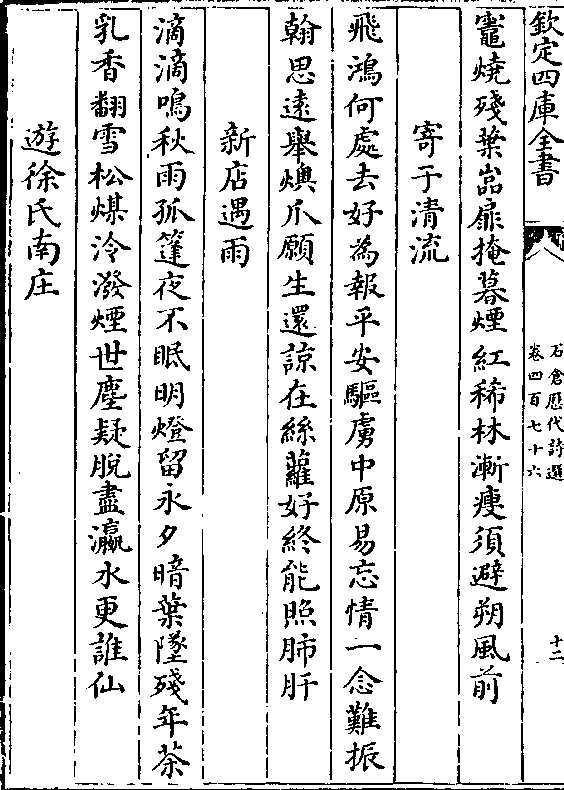 欽定四庫全書
石倉歴代詩選
卷四百七十六
十二
竈燒殘葉嵓扉掩暮煙紅稀林漸瘦須避朔風前
寄于清流
飛鴻何處去好為報平安驅虜中原易忘情一念難振
翰思遠舉燠爪願生還諒在絲蘿好終能照肺肝
新店遇雨
滴滴鳴秋雨孤篷夜不眠明燈留永夕暗葉墜殘年茶
乳香翻雪松煤冷潑煙世塵疑脫盡瀛水更誰仙
遊徐氏南庄